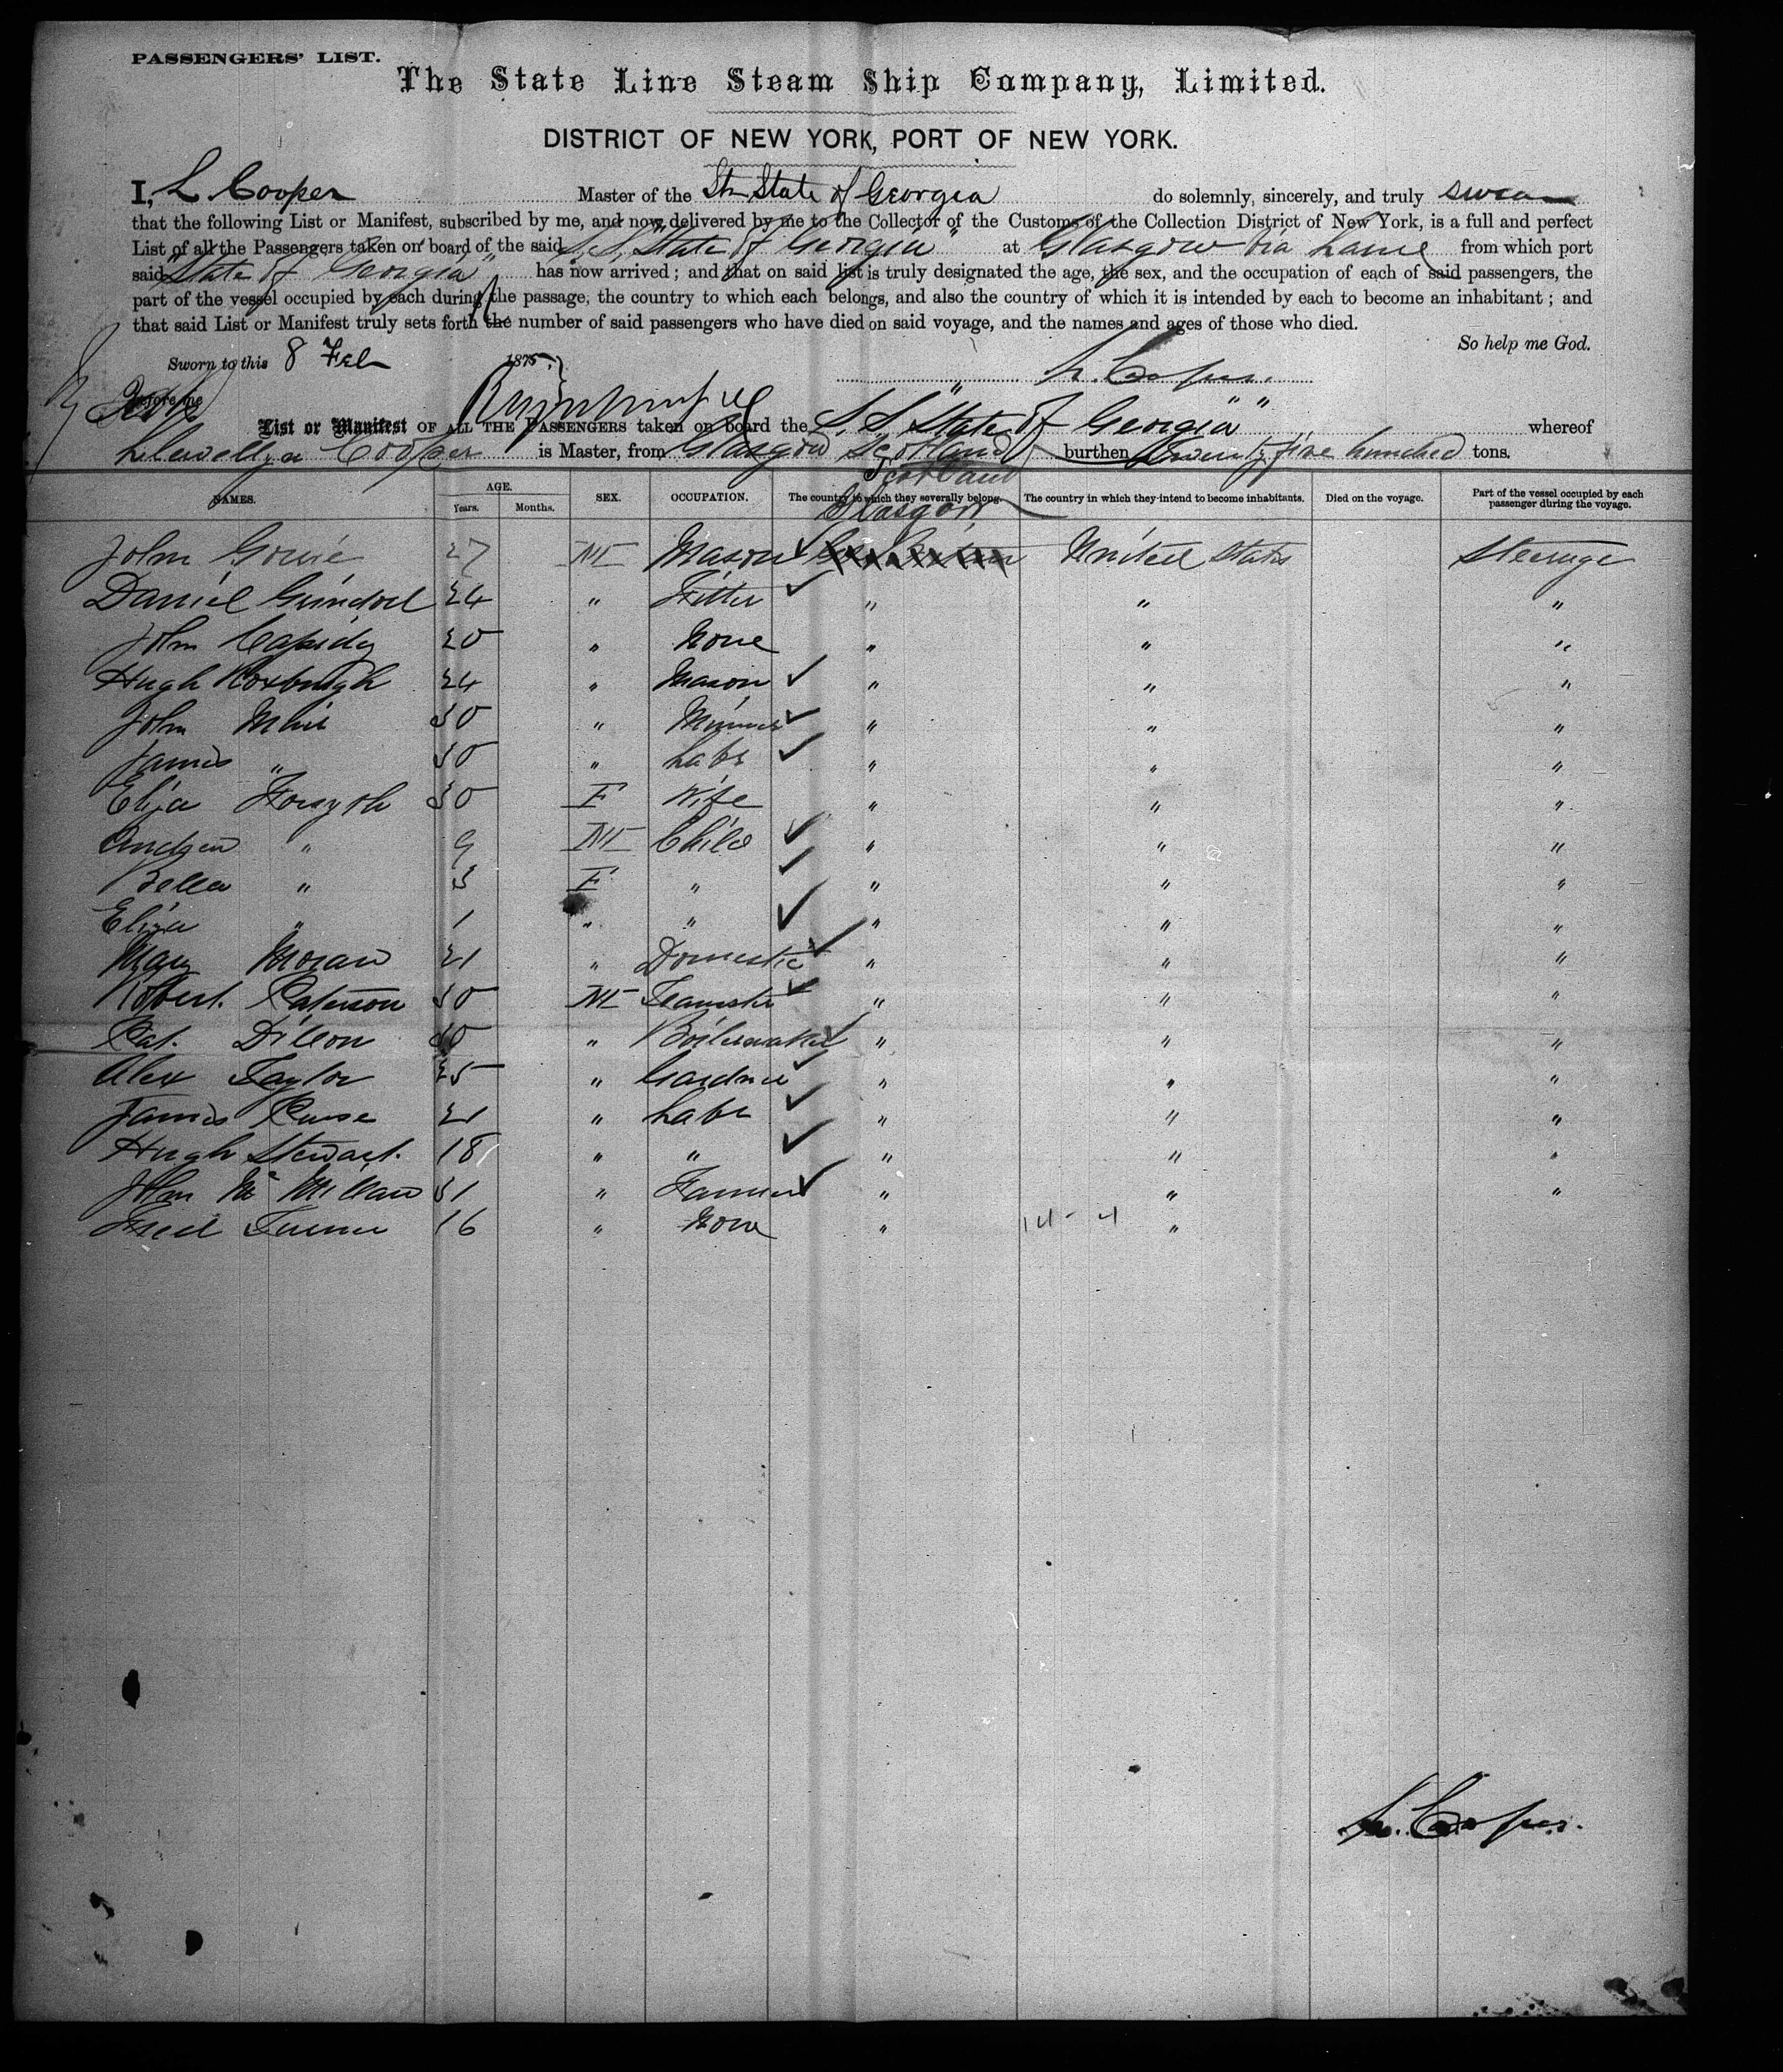 PASSENGERS' LIST.
The State Line Steam Ship Company, Limited.
DISTRICT OF NEW YORK, PORT OF NEW YORK.
I, L Cooper Master of the Str State of Georgia do solemnly, sincerely, and truly swear
that the following List or Manifest, subscribed by me, and now delivered by me to the Collector of the Customs of the Collection District of New York, is a full and perfect
List of all the Passengers taken on board of the said S.S. "State of Georgia" at Glasgow via Larne from which port
said "State of Georgia" has now arrived; and that on said list is truly designated the age, the sex, and the occupation of each of said passengers, the
part of the vessel occupied by each during the passage, the country to which each belongs, and also the country of which it is intended by each to become an inhabitant; and
that said List or Manifest truly sets forth the number of said passengers who have died on said voyage, and the names and ages of those who died.
So help me God.
Sworn to this 8 Feb 1875.
L. Cooper.
Before me
List or Manifest OF ALL THE PASSENGERS taken on board the S.S. "State of Georgia" whereof
Llewellyn Cooper is Master, from Glasgow Scotland burthen Twenty five hundred tons.
NAMES. AGE. Years. Months. SEX. OCCUPATION. The country to which they severally belong. The country in which they intend to become inhabitants. Died on the voyage. Part of the vessel occupied by each passenger during the voyage.
Scotland
Glasgow
John Gowie 27 M Mason United States Steerage
Daniel 24 " Fitter " " "
John Cassidy 20 " None " " "
Hugh Roxburgh 24 " Mason " " "
John Muir 30 " Minner " " "
James " 30 " Labr " " "
Eliza Forsyth 30 F Wife " " "
Andrew " 9 M Child " " "
Bella " 3 F " " " "
Eliza " 1 " " " " "
Mary Moran 21 " Domestic " " "
Robert Paterson 30 M Teamster " " "
Pat. Dillon " Boilermaker " " "
Alex Taylor 25 " Gardner " " "
James 21 " Labr " " "
Hugh Stewart. 18 " " " " "
John McMillan 31 " Farmer " " "
Fred Turner 16 " None " 14-4 "
L. Cooper.